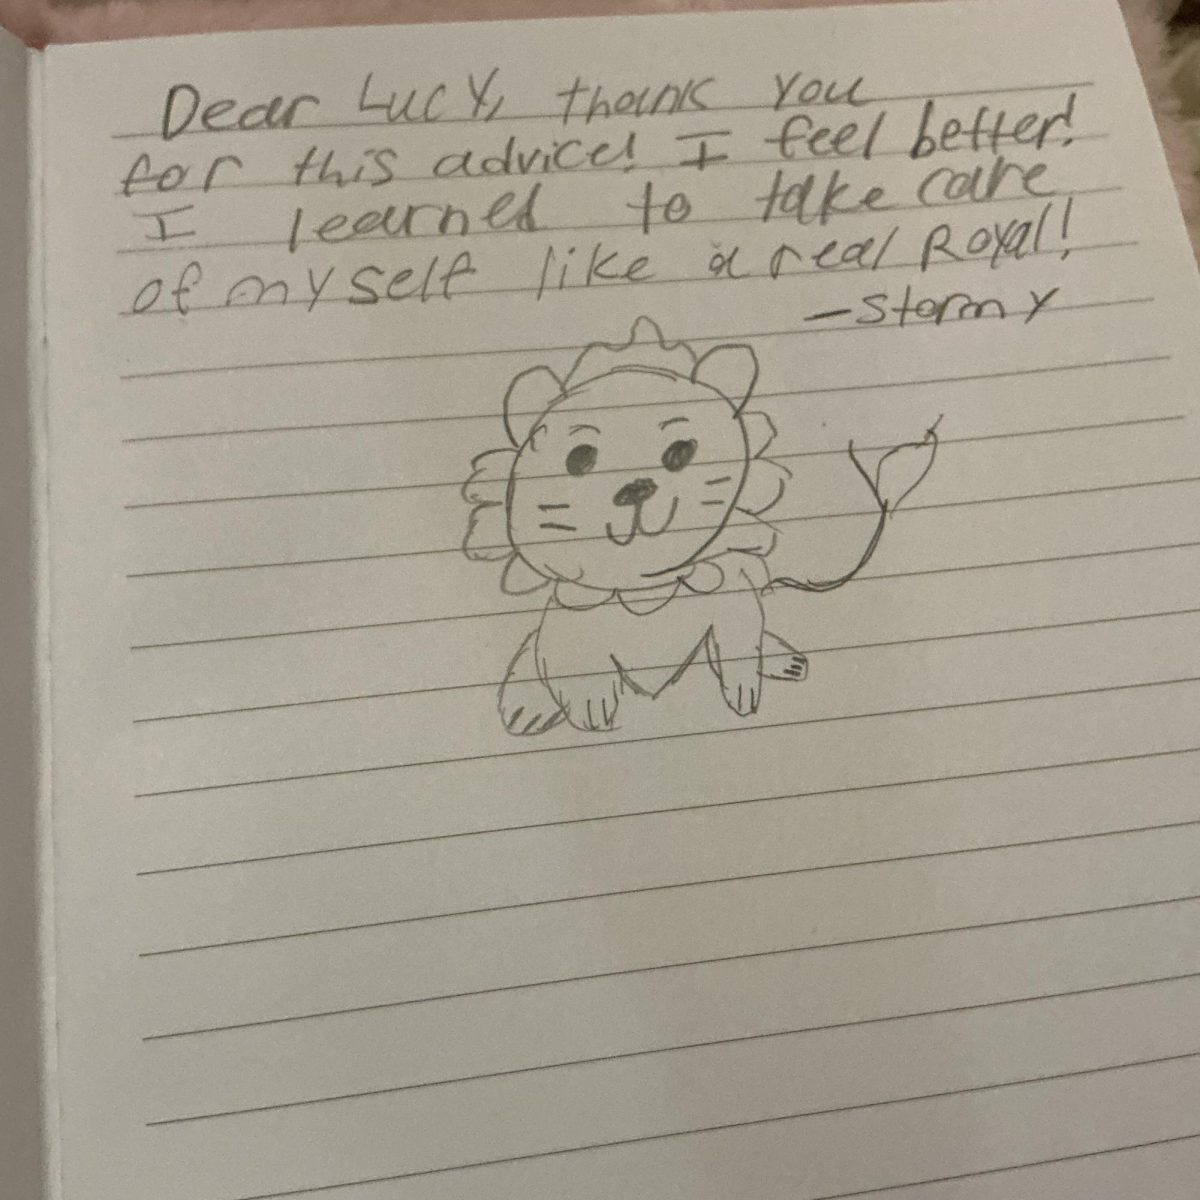 Dear Lucy, thank you
for this advice! I feel better!
I learned to take care
of myself like a real Royal!
-Stormy